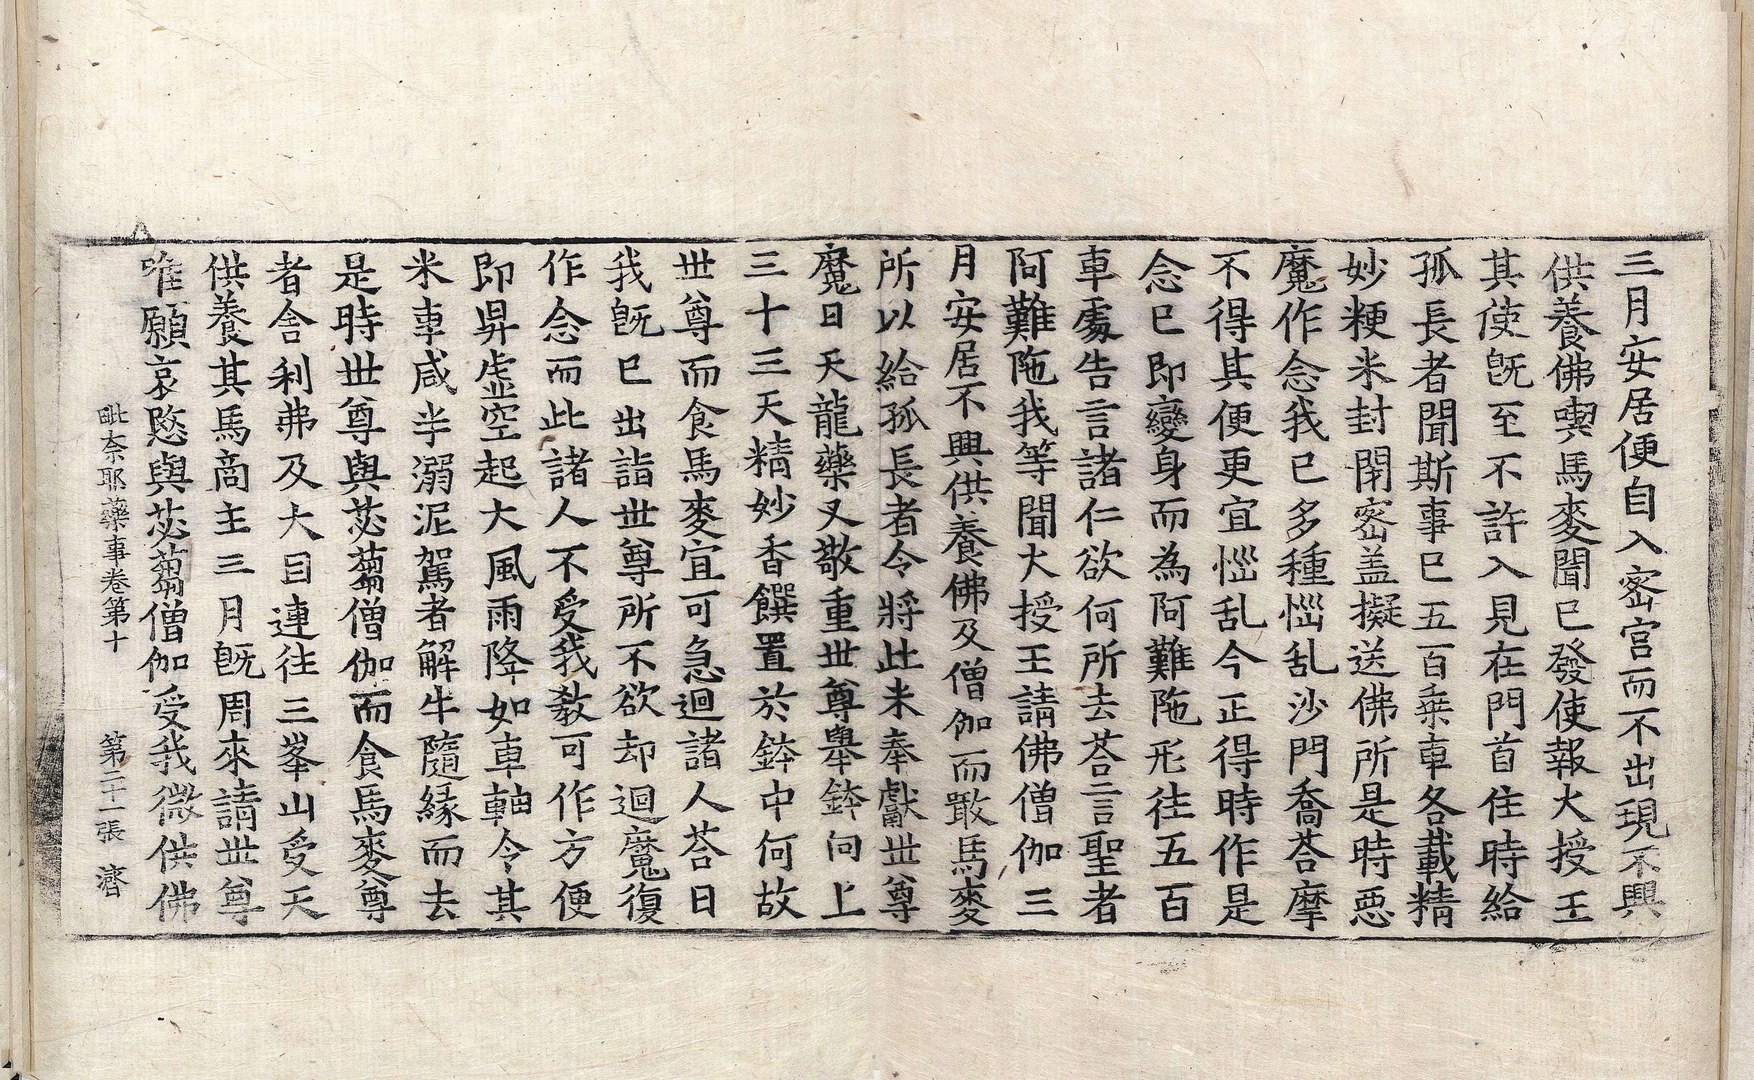 三月安居便自入宻宫而不出現不興
供養佛喫馬麥聞已發使報大授王
其使旣至不許入見在門首住時給
孤長者聞斯事已五百乗車各載精
妙粳米封閇宻盖擬送佛所是時惡
魔作念我已多種惱乱沙門喬荅摩
不得其便更宜惱乱今正得時作是
念已即變身而為阿難陁形往五百
車䖏告言諸仁欲何所去荅言聖者
阿難陁我等聞大授王請佛僧伽三
月安居不興供養佛及僧伽而噉馬麥
所以給孤長者令將此米奉獻世尊
魔曰天龍藥叉敬重世尊舉鉢向上
三十三天精妙香饌置於鉢中何故
世尊而食馬麥宜可急迴諸人荅曰
我旣已出詣世尊所不欲却迴魔復
作念而此諸人不受我教可作方便
即昇虚空起大風雨降如車軸令其
米車咸半溺泥駕者解牛隨緣而去
是時世尊與苾蒭僧伽而食馬麥尊
者舎利弗及大目連往三峯山受天
供養其馬商主三月旣周來請世尊
唯願哀愍與苾蒭僧伽受我微供佛
毗奈耶藥事卷第十　第二十一張　濟